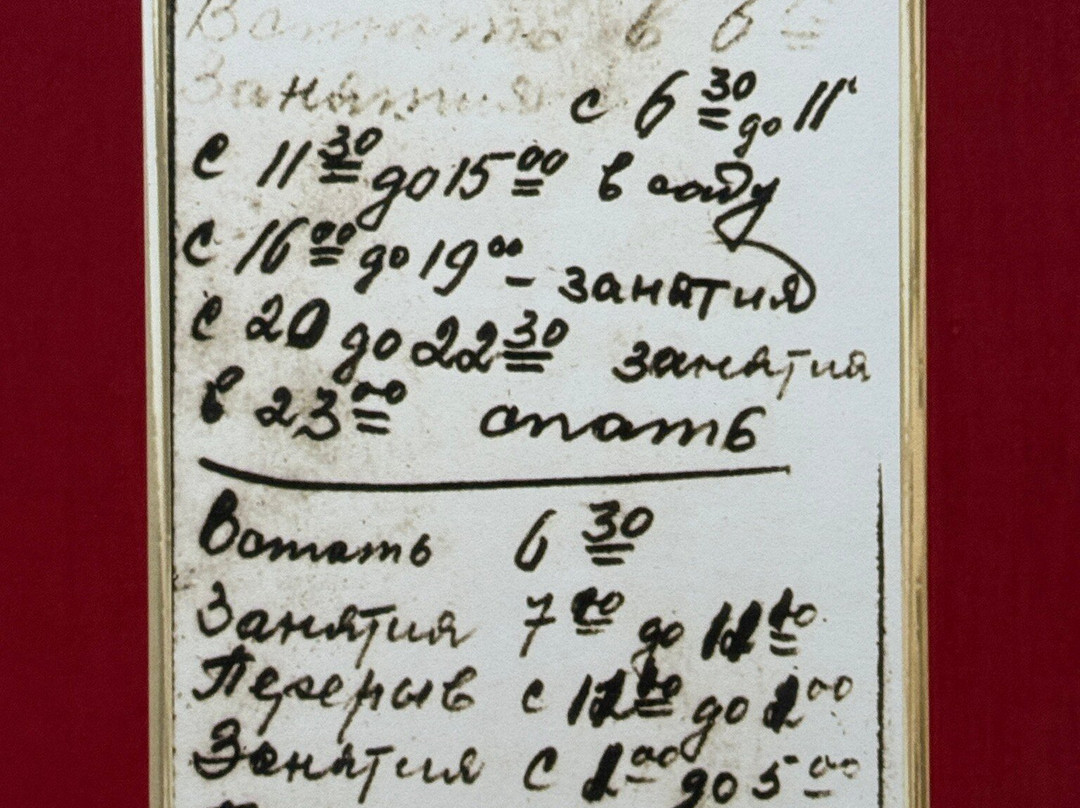 Встать в 6 00
Занятия с 6 30 до 11
с 11 30 до 15 00 в саду
с 16 00 до 19 00 - занятия
с 20 до 22 30 занятия
в 23 00 спать
Встать 6 30
Занятия 7 00 до
Перерыв с до 00
Занятия с 00 до 5 00